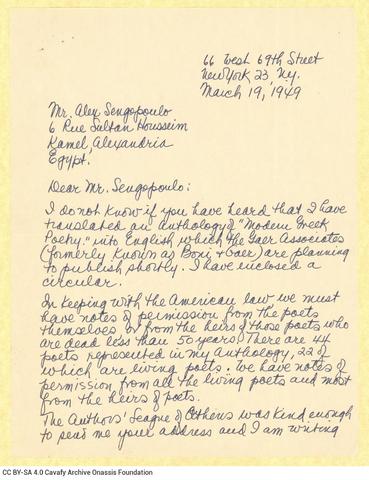 66 West 69th Street
New York 23, Ny.
March 19, 1949
Mr. Alex Sengopoulo
6 Rue Sultan Housseim
Kamel, Alexandria
Egypt.
Dear Mr. Sengopoulo:
I do not know if you have heard that I have
translated an anthology of "Modern Greek
Poetry." into English which the Gaer Associates
(formerly known as Boni & Gaer) are planning
to publish shortly. I have enclosed a
circular.
In keeping with the American law we must
have notes of permission from the poets
themselves or from the heirs of those poets who
are dead less than 50 years. There are 44
poets represented in my Anthology, 22 of
which are living poets. We have notes of
permission from all the living poets and most
from the heirs of poets.
The Authors' League of Athens was kind enough
to send me your address and I am writing
CC BY-SA 4.0 Cavafy Archive Onassis Foundation